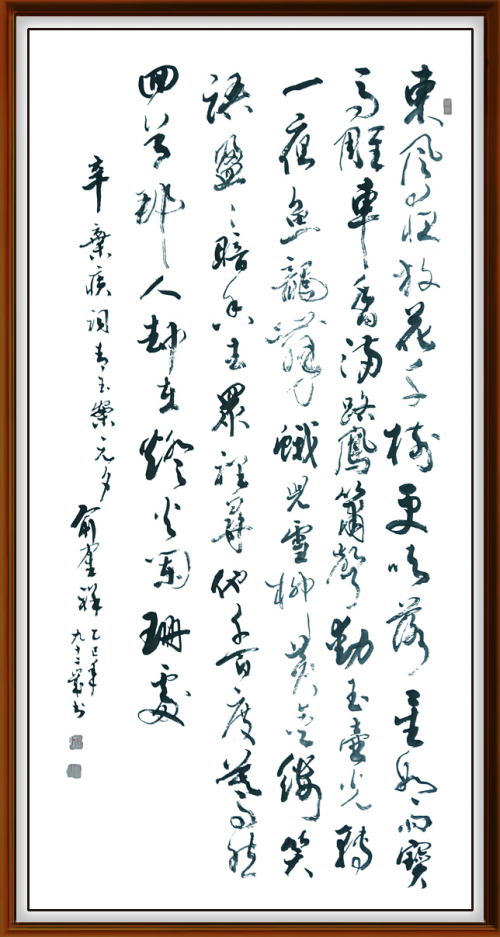 東風夜放花千樹更吹落星如雨寶
馬雕車香滿路鳳簫聲動玉壺光轉
一夜魚龍舞蛾兒雪柳黃金縷笑
語盈〻暗香去眾裡尋他千百度驀然
回首那人却在燈火闌珊處
辛棄疾詞青玉案元夕 俞奎祥 乙巳年
九十二歲书